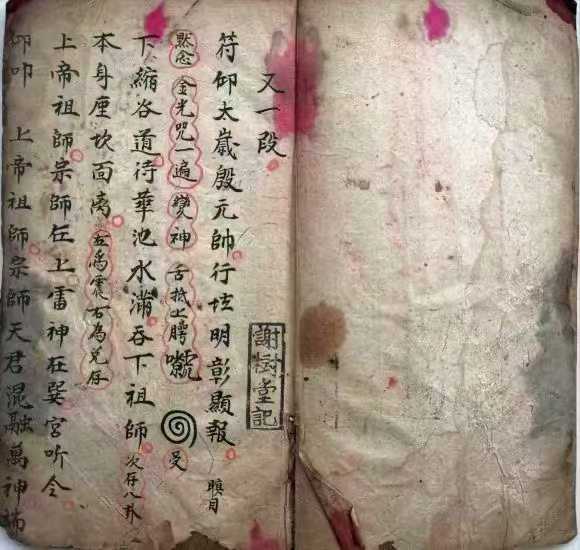 又一段
謝樹堂記
符仰太歲殷元帥行壇明彰顯報 瞑目
默念 金光咒一遍 變神 舌抵上腭 受
下縮谷道待華池水滿吞下祖師 次存八卦
本身座坎面離 左為震右為兌存
上帝祖師宗師在上雷神在巽宮听令
仰叩 上帝祖師宗師天君混融萬神